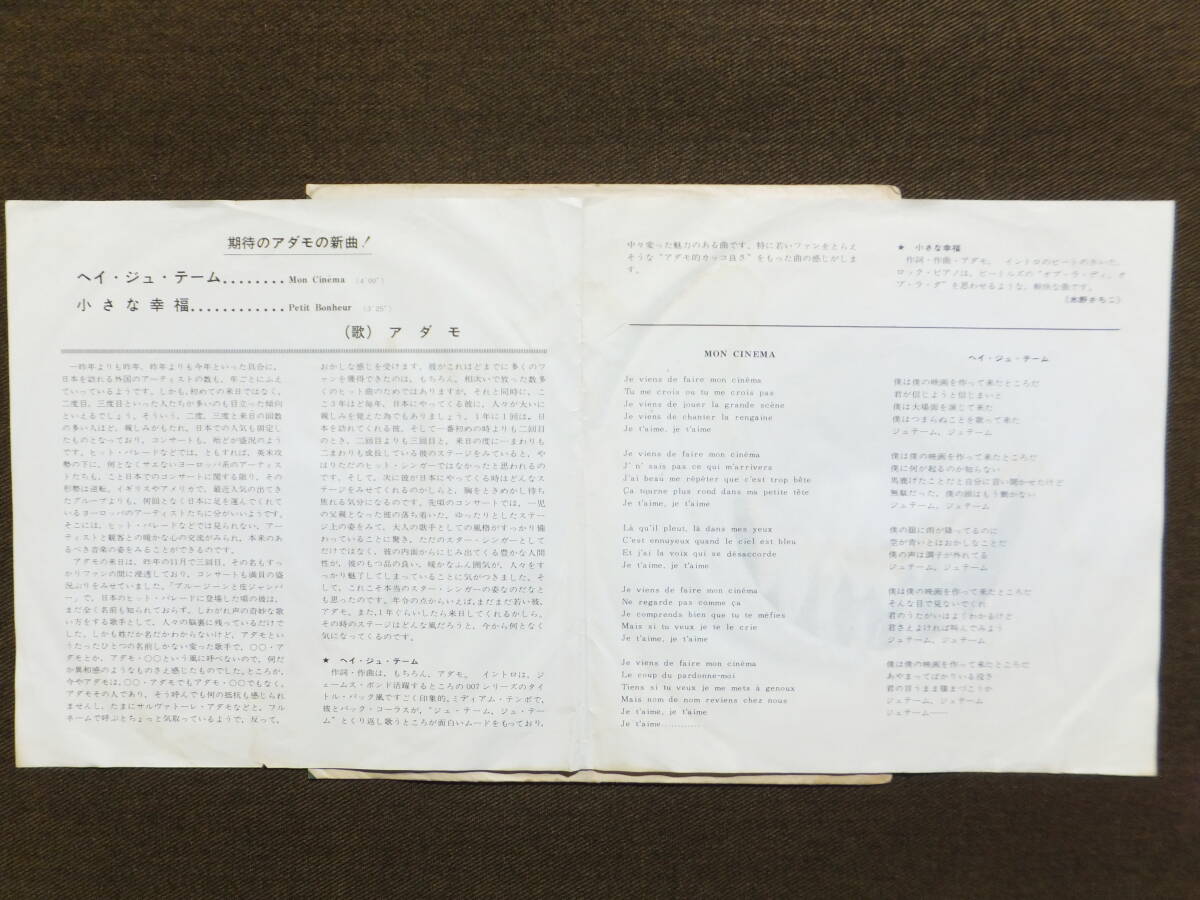 期待のアダモの新曲!
ヘイ・ジュ・テーム........ Mon Cinéma (4'00")
小さな幸福............ Petit Bonheur (3'25")
(歌) アダモ
一昨年よりも昨年、昨年よりも今年といった具合に、
日本を訪れる外国のアーティストの数も、年ごとにふえ
ていっているようです。しかも、初めての来日ではなく、
二度目、三度目といった人たちが多いのも目立った傾向
といえるでしょう。そういう、二度、三度と来日の回数
の多い人ほど、親しみがもたれ、日本での人気も固定し
たものとなっており、コンサートも、殆どが盛況のよう
です。ヒット・パレードなどでは、ともすれば、英米攻
勢の下に、何となくサエないヨーロッパ系のアーティス
トたちも、こと日本でのコンサートに関する限り、その
形勢は逆転、イギリスやアメリカで、最近人気の出てき
たグループよりも、何回となく日本に足を運んでくれて
いるヨーロッパのアーティストたちに分がいいようです。
そこには、ヒット・パレードなどでは見られない、アー
ティストと観客との暖かな心の交流がみられ、本来のあ
るべき音楽の姿をみることができるのです。
アダモの来日は、昨年の11月で三回目、その名もすっ
かりファンの間に浸透しており、コンサートも満員の盛
況ぶりをみせていました。「ブルージーンと皮ジャンパ
ー」で、日本のヒット・パレードに登場した頃の彼は、
まだ全く名前も知られておらず、しわがれ声の奇妙な歌
い方をする歌手として、人々の脳裏に残っているだけで
した。しかも姓だか名だかわからないけど、アダモとい
うたったひとつの名前しかない変った歌手で、○○・ア
ダモとか、アダモ・○○という風に呼べないので、何だ
か異和感のようなものさえ感じたものでした。ところが、
今やアダモは、○○・アダモでもアダモ・○○でもなく、
アダモその人であり、そう呼んでも何の抵抗も感じられ
ませんし、たまにサルヴァトーレ・アダモなどと、フル
ネームで呼ぶとちょっと気取っているようで、反って、
おかしな感じを受けます。彼がこれほどまでに多くのフ
ァンを獲得できたのは、もちろん、相次いで放った数多
くのヒット曲のためではありますが、それと同時に、こ
こ3年ほど毎年、日本にやってくる彼に、人々が大いに
親しみを覚えた為でもありましょう。1年に1回は、日
本を訪れてくれる彼、そして一番初めの時よりも二回目
のとき、二回目よりも三回目と、来日の度に一まわりも
二まわりも成長している彼のステージをみていると、や
はりただのヒット・シンガーではなかったと思われるの
です。そして、次に彼が日本にやってくる時はどんなス
テージをみせてくれるのかしらと、胸をときめかし待ち
焦れる気分になるのです。先頃のコンサートでは、一児
の父親となった彼の落ち着いた、ゆったりとしたステー
ジ上の姿をみて、大人の歌手としての風格がすっかり備
わっていることに驚き、ただのスター・シンガーとして
だけではなく、彼の内面からにじみ出てくる豊かな人間
性が、彼のもつ品の良い、暖かなふん囲気が、人々をす
っかり魅了してしまっていることに気がつきました。そ
して、これこそ本当のスター・シンガーの姿なのだなと
も思ったのです。年令の点からいえば、まだまだ若い彼、
アダモ。また、1年ぐらいしたら来日してくれるかしら、
その時のステージはどんな風だろうと、今から何となく
気になってくるのです。
★ ヘイ・ジュ・テーム
作詞・作曲は、もちろん、アダモ。 イントロは、ジ
ェームス・ボンド活躍するところの007シリーズのタイ
トル・バック風ですごく印象的。ミディアム・テンポで、
彼とバック・コーラスが、"ジュ・テーム、ジュ・テー
ム"とくり返し歌うところが面白いムードをもっており、
中々変った魅力のある曲です。特に若いファンをとらえ
そうな"アダモ的カッコ良さ"をもった曲の感じがしま
す。
★ 小さな幸福
作詞・作曲・アダモ。 イントロのビートのきいた、
ロック・ピアノは、ビートルズの"オブ・ラ・ディ、オ
ブ・ラ・ダ"を思わせるような、軽快な曲です。
MON CINEMA
Je viens de faire mon cinéma
Tu me crois ou tu me crois pas
Je viens de jouer la grande scène
Je viens de chanter la rengaine
Je t'aime, je t'aime
Je viens de faire mon cinéma
J' n' sais pas ce qui m'arrivera
J'ai beau me répéter que c'est trop bête
Ca tourne plus rond dans ma petite tête
Je t'aime, je t'aime
Là qu'il pleut, là dans mes yeux
C'est ennuyeux quand le ciel est bleu
Et j'ai la voix qui se désaccorde
Je t'aime, je t'aime
Je viens de faire mon cinéma
Ne regarde pas comme ça
Je comprends bien que tu te méfies
Mais si tu veux je te le crie
Je t'aime, je t'aime
Je viens de faire mon cinéma
Le coup du pardonne-moi
Tiens si tu veux je me mets à genoux
Mais nom de nom reviens chez nous
Je t'aime, je t'aime
Je t'aime...........
ヘイ・ジュ・テーム
僕は僕の映画を作って来たところだ
君が信じようと信じまいと
僕は大場面を演じて来た
僕はつまらぬことを歌って来た
ジュテーム、ジュテーム
僕は僕の映画を作って来たところだ
僕に何が起るのか知らない
馬鹿げたことだと自分に言い聞かせたけど
無駄だった、僕の頭はもう働かない
ジュテーム、ジュテーム
僕の眼に雨が降ってるのに
空が青いとはおかしなことだ
僕の声は調子が外れてる
ジュテーム、ジュテーム
僕は僕の映画を作って来たところだ
そんな目で見ないでくれ
君のうたがいはようくわかるけど
君さえよければ叫んでみよう
ジュテーム、ジュテーム
僕は僕の映画を作って来たところだ
あやまってばかりいる役さ
君の目うまま跪まづこうか
ジュテーム、ジュテーム
ジュテーム——